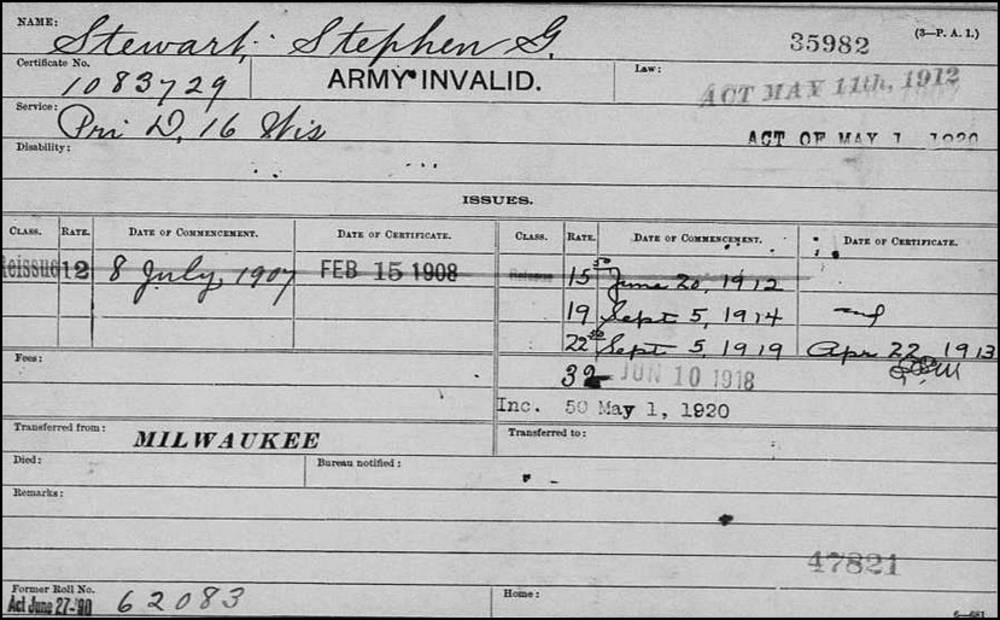 NAME: Stewart, Stephen G. 35982 (3—P. A. 1.)
Certificate No. 1083729 ARMY INVALID. Law: ACT MAY 11th, 1912
Service: Pri D, 16 Wis ACT OF MAY 1 1920
Disability:
ISSUES.
CLASS. RATE. DATE OF COMMENCEMENT. DATE OF CERTIFICATE. CLASS. RATE. DATE OF COMMENCEMENT. DATE OF CERTIFICATE.
Reissue 12 8 July, 1907 FEB 15 1908 15 50 June 20, 1912
19 Sept 5, 1914
22 50 Sept 5, 1919 Apr 22, 1913
Fees: 32 JUN 10 1918
Inc. 50 May 1, 1920
Transferred from: MILWAUKEE Transferred to:
Died: Bureau notified:
Remarks:
47821
Former Roll No. Act June 27-'90 62083 Home:
6—681